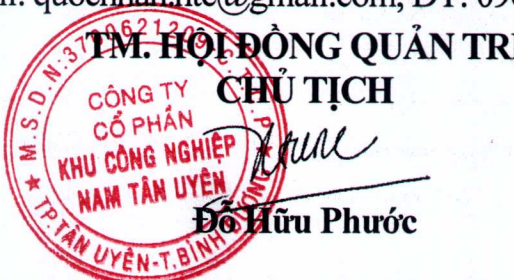 quochnan.ntc@gmail.com, ĐT: 090
TM. HỘI ĐỒNG QUẢN TRỊ
CHỦ TỊCH
M.S.D.N:3700621209-C.T.C.P
CÔNG TY
CỔ PHẦN
KHU CÔNG NGHIỆP
NAM TÂN UYÊN
TP.TÂN UYÊN-T.BÌNH
Đỗ Hữu Phước